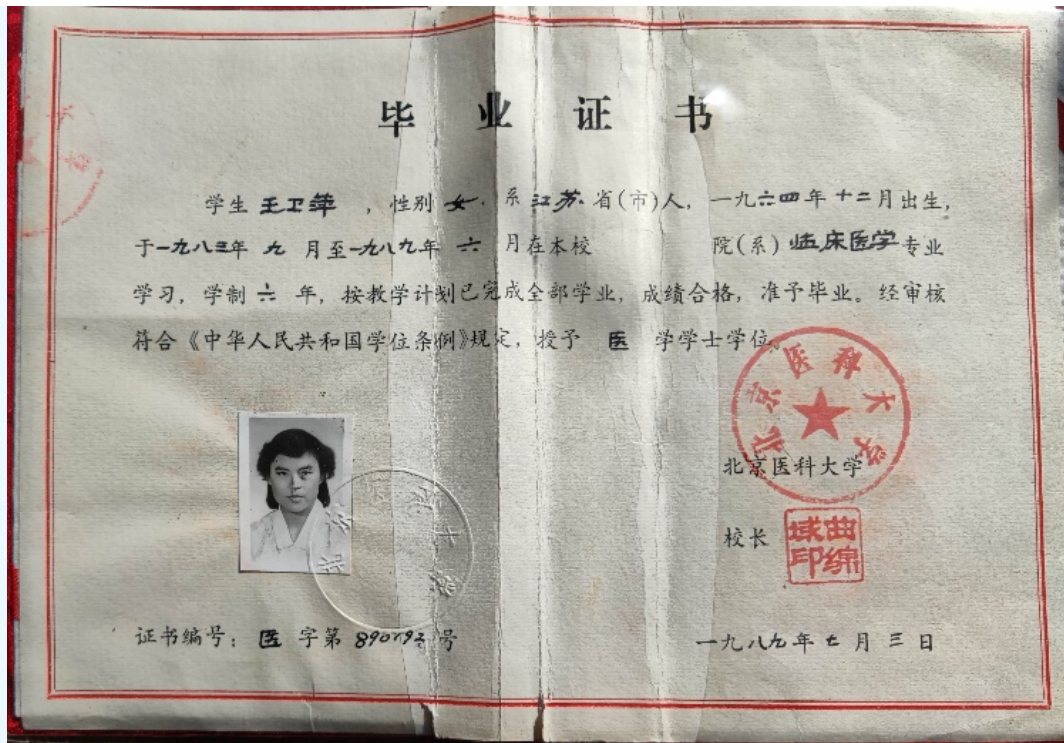 毕业证书
学生 王卫萍 ，性别 女 ，系 江苏 省(市)人，一九六四年 十二月出生，
于一九八三年 九 月至一九八九年 六 月在本校 院(系) 临床医学 专业
学习，学制 六 年，按教学计划已完成全部学业，成绩合格，准予毕业。经审核
符合《中华人民共和国学位条例》规定，授予 医 学学士学位。
北京医科大学
北京医科大学
校长
曲绵域印
证书编号：医 字第 号
一九八九年七月三日